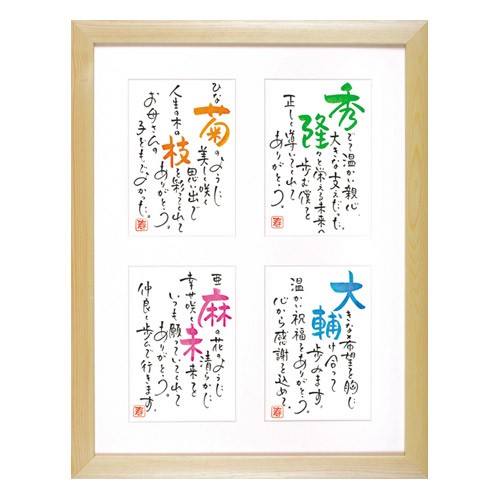 秀でて温かい親心、
大きな支えだった。
隆々と栄える未来へ
歩む僕を
正しく導いてくれて
ありがとう。
ひな菊のように
美しく咲く
思い出で
人生の木の枝を彩ってくれて
ありがとう。
お母さんの
子どもで、よかった。
大きな希望を胸に
輔け合って
歩みます。
温かい祝福をありがとう。
心から感謝を込めて。
亜麻の花のように
清らかに
幸せ咲く未来を
いつも願っていてくれて
ありがとう。
仲良く歩んで行きます。